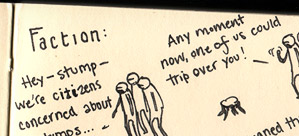 Faction:
Hey-stump-
we're citizens
concerned about
Any moment
now, one of us could
trip over you!